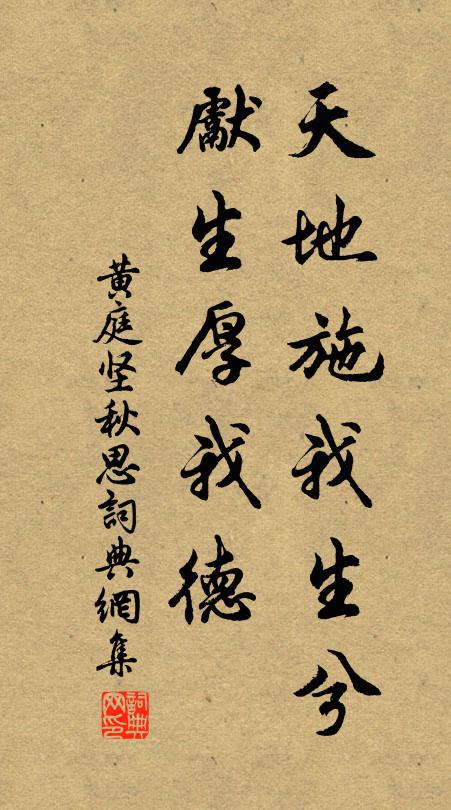 天地施我生兮
獻生厚我德
黄庭坚秋思詞典網集
詞典网印